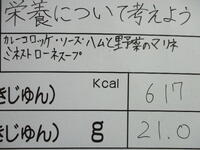 栄養について考えよう
カレーコロッケ・ソーズ・ハムと野菜のマリネ
ミネストローネスープ
きじゅん) Kcal 617
きじゅん) g 21.0